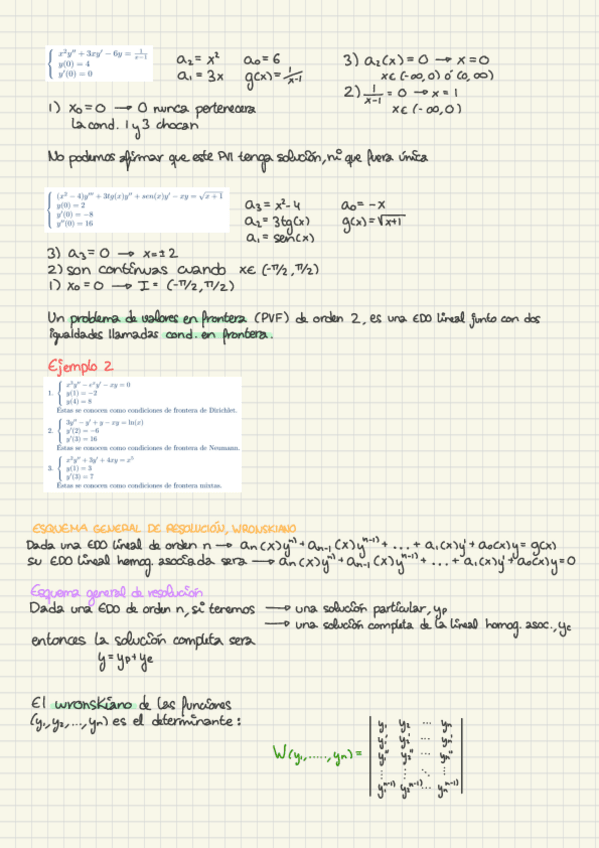 x²y'' + 3xy' − 6y = 1/(x−1)
y(0) = 4
y'(0) = 0
a₂ = x² a₀ = 6
a₁ = 3x g(x) = 1/(x-1)
3) a₂(x) = 0 → x = 0
x ∈ (-∞, 0) ó (0, ∞)
2) 1/(x-1) = 0 → x = 1
x ∈ (-∞, 0)
1) x₀ = 0 → 0 nunca pertenecera
La cond. 1 y 3 chocan
No podemos afirmar que este PVI tenga solución, ni que fuera única
(x² − 4)y''' + 3tg(x)y'' + sen(x)y' − xy = √(x + 1)
y(0) = 2
y'(0) = −8
y''(0) = 16
a₃ = x² - 4 a₀ = -x
a₂ = 3tg(x) g(x) = √(x+1)
a₁ = sen(x)
3) a₃ = 0 → x = ± 2
2) son continuas cuando x ∈ (-π/2, π/2)
1) x₀ = 0 → I = (-π/2, π/2)
Un problema de valores en frontera (PVF) de orden 2, es una EDO lineal junto con dos
igualdades llamadas cond. en frontera.
Ejemplo 2
x²y'' − eˣy' − xy = 0
1. y(1) = −2
y(4) = 8
Éstas se conocen como condiciones de frontera de Dirichlet.
3y'' − y' + y − xy = ln(x)
2. y'(2) = −6
y'(3) = 16
Éstas se conocen como condiciones de frontera de Neumann.
x²y'' + 3y' + 4xy = x⁵
3. y(1) = 3
y'(3) = 7
Éstas se conocen como condiciones de frontera mixtas.
ESQUEMA GENERAL DE RESOLUCIÓN, WRONSKIANO
Dada una EDO lineal de orden n → aₙ(x)yⁿ⁾ + aₙ₋₁(x)yⁿ⁻¹⁾ + ... + a₁(x)y' + a₀(x)y = g(x)
su EDO lineal homog. asociada sera → aₙ(x)yⁿ⁾ + aₙ₋₁(x)yⁿ⁻¹⁾ + ... + a₁(x)y' + a₀(x)y = 0
Esquema general de resolución
Dada una EDO de orden n, si teremos → una solución particular, yp
→ una solución completa de la lineal homog. asoc., yc
entonces la solución completa sera
y = yp + yc
El wronskiano de las funciones
(y₁, y₂, ..., yₙ) es el determinante:
y₁ y₂ ... yₙ
y₁' y₂' ... yₙ'
W(y₁, ....., yₙ) = y₁'' y₂'' ... yₙ''
... ... ⋱ ...
y₁ⁿ⁻¹⁾ y₂ⁿ⁻¹⁾ ... yₙⁿ⁻¹⁾